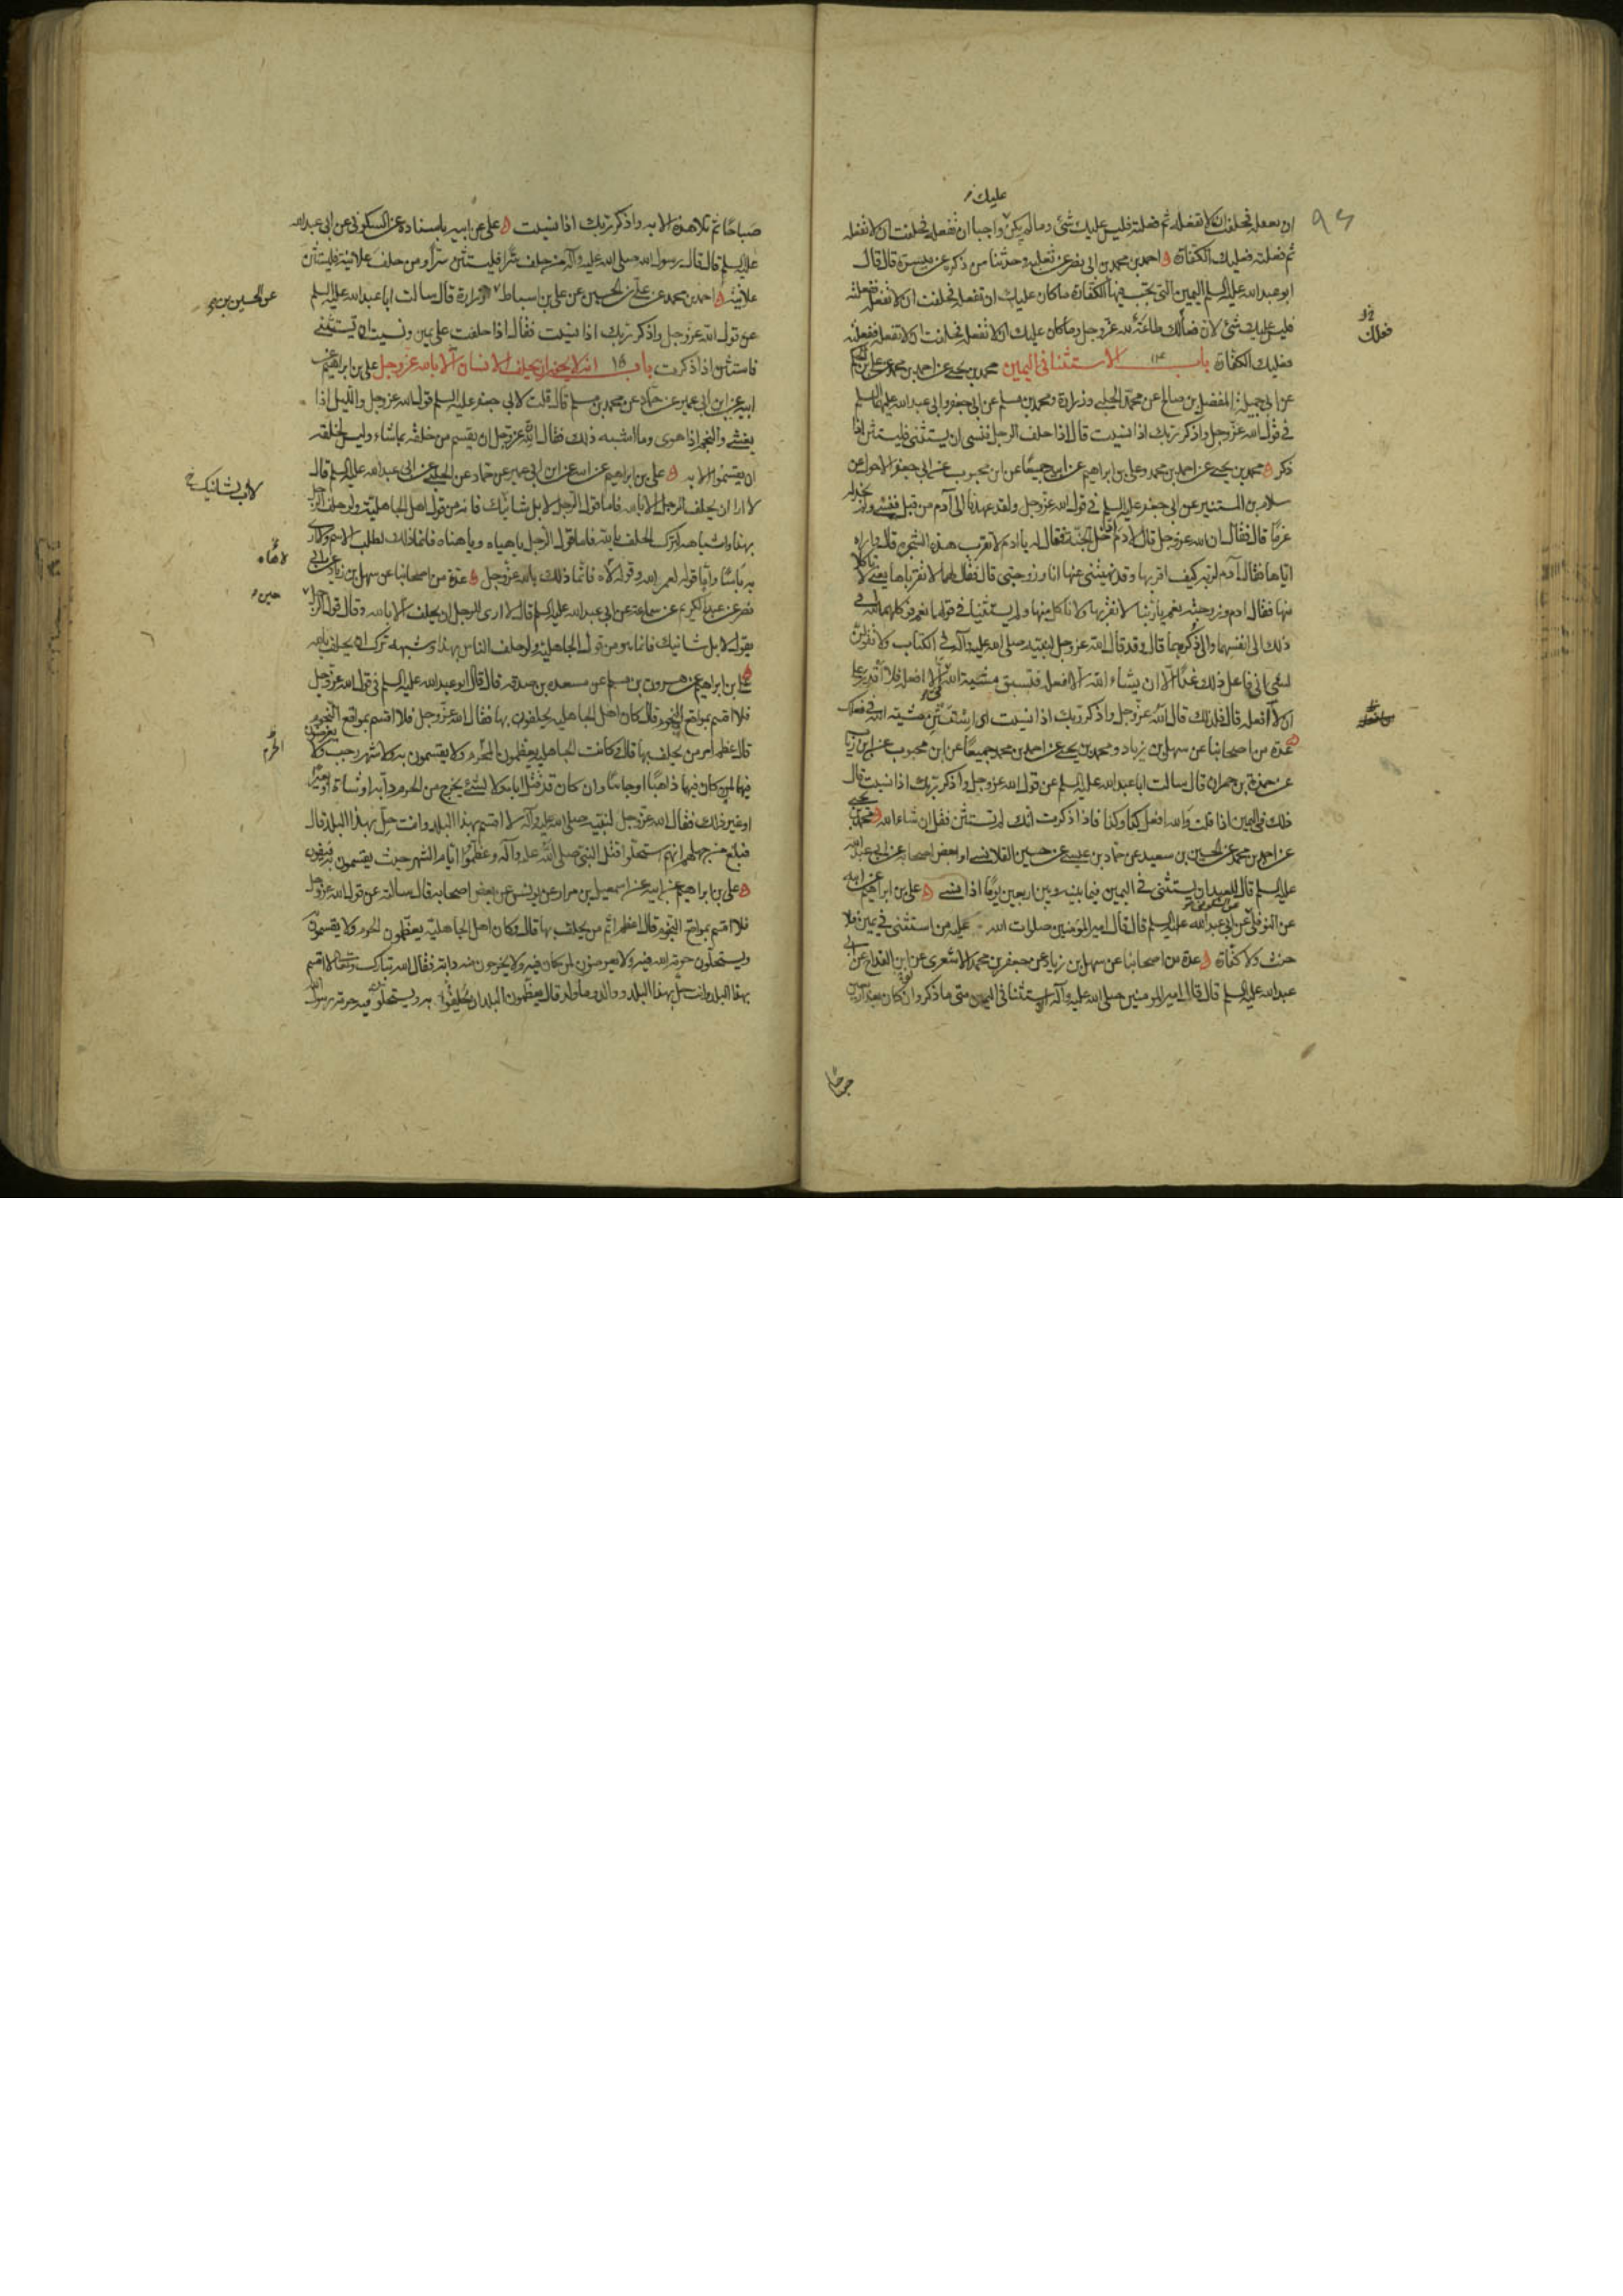 عليك
ان تفعله فحلفت ان لا تفعله ثم فعلته فليس عليك شئ وما لم يكن واجبا ان تفعله فحلفت ان لا تفعله
ثم فعلته فعليك الكفارة احمد بن محمد بن ابى نصر عن ثعلبه وحدثنا من ذكره عن ميسرة قال قال
ابو عبدالله عليه السلم اليمين التى تجب فيها الكفارة ما كان عليك ان تفعله فحلفت ان لا تفعله ففعلته
فليس عليك شئ لان فعالك طاعة لله عزوجل وما كان عليك ان لا تفعله فحلفت ان لا تفعله ففعلته
فعليك الكفارة باب ١٤ الاستثنا فى اليمين محمد بن يحيى عن احمد بن محمد عن على بن الحكم
عن ابى جميلة المفضل بن صالح عن محمد الحلبى وزرارة ومحمد بن مسلم عن ابى جعفر وابى عبدالله عليهما السلم
فى قول الله عزوجل واذكر ربك اذا نسيت قال اذا حلف الرجل فنسى ان يستثنى فليستثن اذا
ذكر محمد بن يحيى عن احمد بن محمد وعلى بن ابراهيم عن ابيه جميعا عن ابن محبوب عن ابى جعفر الاحول عن
سلام بن المستنير عن ابى جعفر عليه السلم فى قول الله عزوجل ولقد عهدنا الى آدم من قبل فنسى ولم نجد له
عزما قال فقال ان الله عزوجل قال لادم ادخل الجنة فقال له يا ادم لا تقرب هذه الشجره قال واراه
اياها فقال آدم لربه كيف اقربها وقد نهيتنى عنها انا وزوجتى قال فقال لهما لا تقرباها يعنى لا تاكلا
منها فقال ادم وزوجته نعم يا ربنا لا نقربها ولا ناكل منها ولم يستثنيا فى قولهما نعم فوكلهما الله فى
ذلك الى انفسهما والى ذكرهما قال وقد قال الله عزوجل لنبيه صلى الله عليه وآله فى الكتاب ولا تقولن
لشئ انى فاعل ذلك غدا الا ان يشاء الله ان لا افعله فتسبق مشية الله فى الا افعله فلا اقدر على
ان لا افعله قال فلذلك قال الله عزوجل واذكر ربك اذا نسيت اى استثن مشيته الله فى فعلك
عدة من اصحابنا عن سهل بن زياد ومحمد بن يحيى عن احمد بن محمد جميعا عن ابن محبوب عن ابن رئاب
عن حمزة بن حمران قال سالت ابا عبدالله عليه السلم عن قول الله عزوجل واذكر ربك اذا نسيت قال
ذلك فى اليمين اذا قلت والله افعل كذا وكذا فاذا ذكرت انك لم تستثن فقل ان شاء الله محمد بن يحيى
عن احمد بن محمد عن الحسين بن سعيد عن حماد بن عيسى عن حسين القلانسى او بعض اصحابه عن ابى عبدالله
عليه السلم قال للعبد ان يستثنى فى اليمين فيما بينه وبين اربعين يوما اذا نسى على بن ابراهيم عن ابيه
عن النوفلى عن السكونى عن ابى عبدالله عليه السلم قال قال امير المؤمنين صلوات الله عليه من استثنى فى يمين فلا
حنث ولا كفارة عدة من اصحابنا عن سهل بن زياد عن جعفر بن محمد الاشعرى عن ابن القداح عن ابى
عبدالله عليه السلم قال قال امير المومنين صلى الله عليه وآله الاستثنا فى اليمين متى ما ذكر وان كان بعد اربعين
فعلك
صباحا ثم تلا هذه الايه واذكر ربك اذا نسيت على عن ابيه باسناده عن السكونى عن ابى عبدالله
عليه السلم قال قال رسول الله صلى الله عليه وآله من حلف سرا فليستثن سرا ومن حلف علانية فليستثن
علانية احمد بن محمد عن على بن الحسين عن على بن اسباط زرارة قال سالت ابا عبدالله عليه السلم
عن قول الله عزوجل واذكر ربك اذا نسيت فقال اذا حلفت على يمين ونسيت ان تستثنى
فاستثن اذا ذكرت باب ١٥ انه لا يجوز ان يحلف الانسان الا بالله عزوجل على بن ابراهيم عن
ابيه عن ابن ابى عمير عن حماد عن محمد بن مسلم قال قلت لابى جعفر عليه السلم قول الله عزوجل والليل اذا
يغشى والنجم اذا هوى وما اشبه ذلك فقال ان لله عزوجل ان يقسم من خلقه بما شاء وليس لخلقه
ان يقسموا الا به على بن ابراهيم عن ابيه عن ابن ابى عمير عن حماد عن الحلبى عن ابى عبدالله عليه السلم قال
لا ارا ان يحلف الرجل الا بالله فاما قول الرجل لا بل شانيك فانه من قول اهل الجاهلية ولو حلف الرجل
بهذا واشباهه لترك الحلف بالله فاما قول الرجل يا هياه ويا هناه فانما ذلك لطلب الاسم ولا ارى
به باسا واما قوله لعمر الله وقوله لاه فانما ذلك بالله عزوجل عدة من اصحابنا عن سهل بن زياد عن ابن ابى
نصر عن عبد الكريم عن سماعة عن ابى عبدالله عليه السلم قال لا ارى للرجل ان يحلف الا بالله وقال قول الرجل
يقول لا بل شانيك فانما هو من قول الجاهلية ولو حلف الناس بهذا وشبهه ترك ان يحلف بالله
على بن ابراهيم عن هرون بن مسلم عن مسعده بن صدقه قال قال ابو عبدالله عليه السلم فى قول الله عزوجل
فلا اقسم بمواقع النجوم قال كان اهل الجاهليه يحلفون بها فقال الله عزوجل فلا اقسم بمواقع النجوم
قال عظم امر من يحلف بها قال وكانت الجاهليه يعظمون المحرم ولا يقسمون به ولا شهر رجب ولا يعرضون
فيهما لمن كان فيهما ذاهبا او جائيا وان كان قد قتل اباه ولا لشئ يخرج من الحرم دآبة او شاة او بعيرا
او غير ذلك فقال الله عزوجل لنبيه صلى الله عليه وآله لا اقسم بهذا البلد وانت حل بهذا البلد قال
فبلغ من جهلهم انهم استحلوا قتل النبى صلى الله عليه وآله وعظموا ايام الشهر حيث يقسمون به فيفون
على بن ابراهيم عن ابيه عن اسمعيل بن مرار عن يونس عن بعض اصحابه قال سالته عن قول الله عزوجل
فلا اقسم بمواقع النجوم قال اعظم اثم من يحلف بها قال وكان اهل الجاهلية يعظمون الحرم ولا يقسمون
ويستحلون حرمة الله فيه ولا يعرضون لمن كان فيه ولا يخرجون منه دابة فقال الله تبارك وتعالى لا اقسم
بهذا البلد وانت حل بهذا البلد ووالد وما ولد قال يعظمون البلد ان يحلفوا به ويستحلون فيه حرمة رسول الله
لا بل شانيك
لاهاه